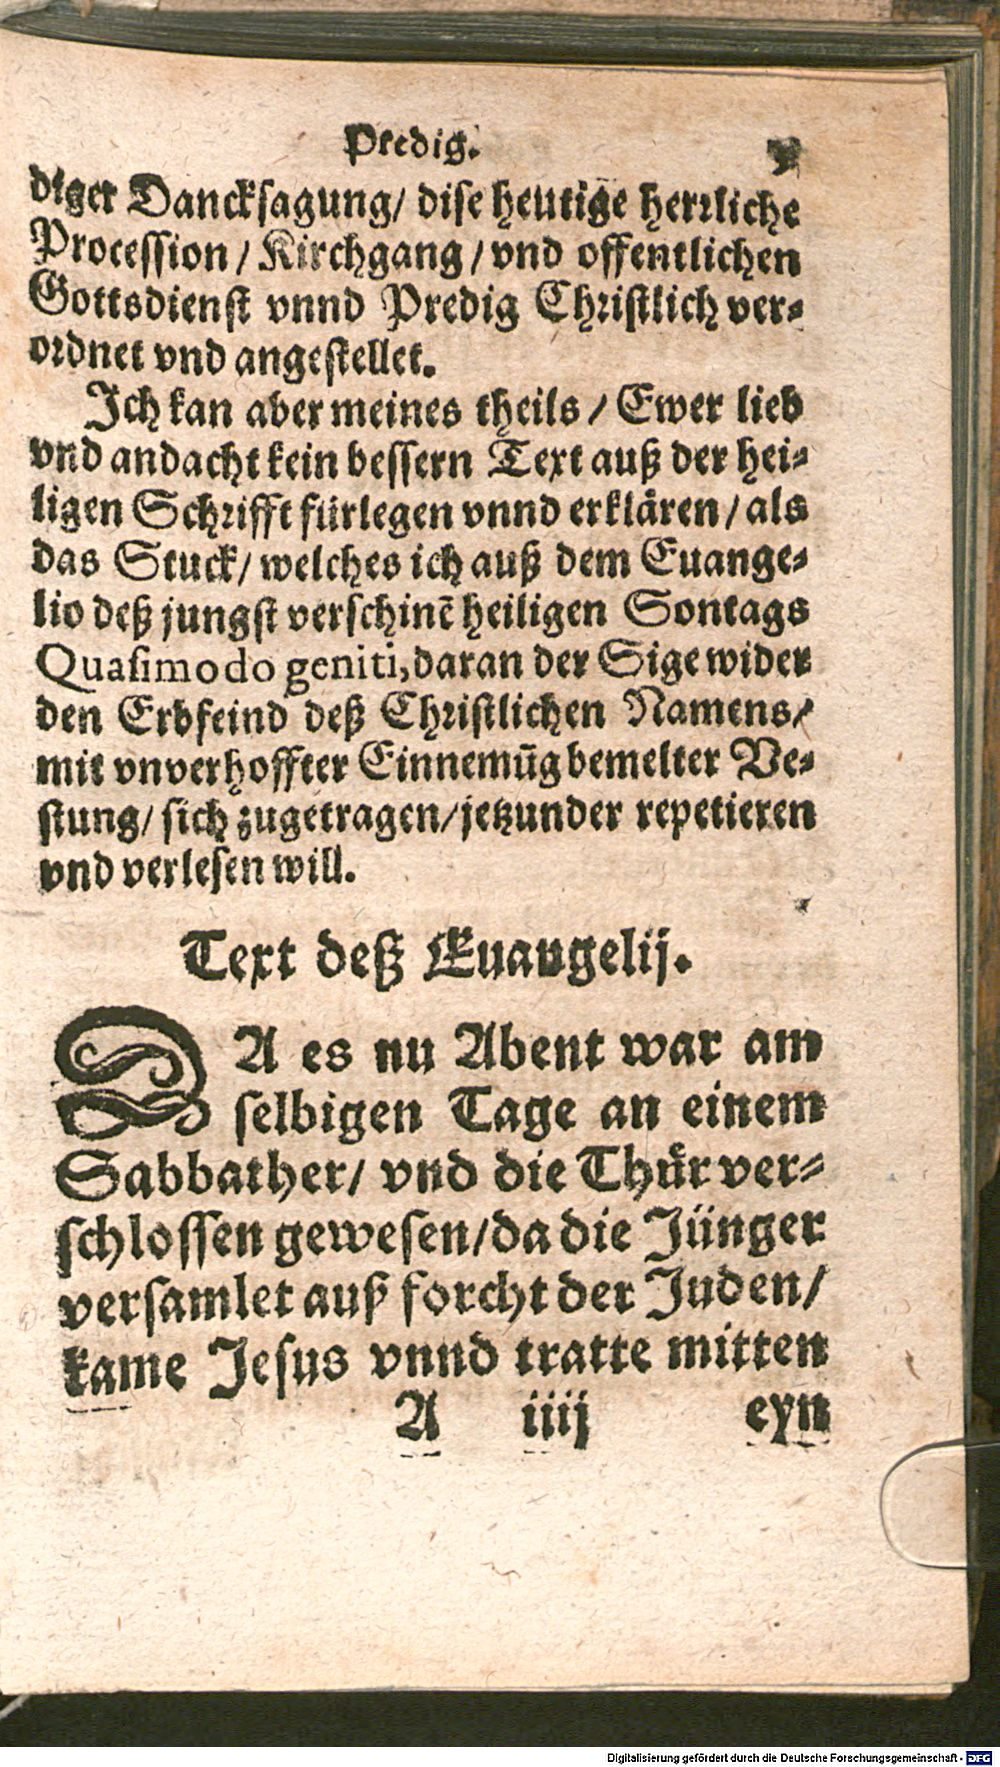 Predig.
diger Dancksagung/ dise heutige herrliche
Procession/ Kirchgang/ vnd offentlichen
Gottsdienst vnnd Predig Christlich ver-
ordnet vnd angestellet.
Ich kan aber meines theils/ Ewer lieb
vnd andacht kein bessern Text auß der hei-
ligen Schrifft fürlegen vnnd erklären/ als
das Stuck/ welches ich auß dem Euange-
lio deß jungst verschinē heiligen Sontags
Quasimodo geniti, daran der Sige wider
den Erbfeind deß Christlichen Namens/
mit vnverhoffter Einnemūg bemelter Ve-
stung/ sich zugetragen/ jetzunder repetieren
vnd verlesen will.
Text deß Euangelij.
DA es nu Abent war am
selbigen Tage an einem
Sabbather/ vnd die Thür ver-
schlossen gewesen/ da die Jünger
versamlet auß forcht der Juden/
kame Jesus vnnd tratte mitten
A iiij eyn
Digitalisierung gefördert durch die Deutsche Forschungsgemeinschaft - DFG